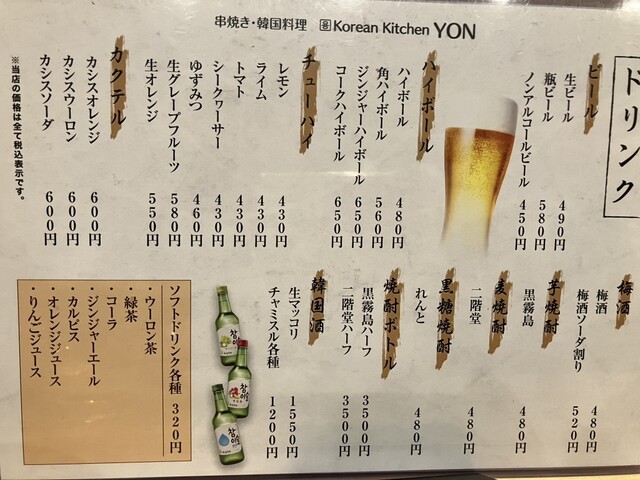 串焼き・韓国料理 Korean Kitchen YON
ドリンク
ビール
生ビール 490円
瓶ビール 580円
ノンアルコールビール 450円
ハイボール
ハイボール 480円
角ハイボール 560円
ジンジャーハイボール 650円
コークハイボール 650円
チューハイ
レモン 430円
ライム 430円
トマト 430円
シークヮーサー 430円
ゆずみつ 460円
生グレープフルーツ 580円
生オレンジ 550円
カクテル
カシスオレンジ 600円
カシスウーロン 600円
カシスソーダ 600円
※当店の価格は全て税込表示です。
梅酒
梅酒 480円
梅酒ソーダ割り 520円
芋焼酎
黒霧島 480円
麦焼酎
二階堂 480円
黒糖焼酎
れんと 480円
焼酎ボトル
黒霧島ハーフ 3500円
二階堂ハーフ 3500円
韓国酒
生マッコリ 1550円
チャミスル各種 1200円
참이슬
참이슬
참이슬
ソフトドリンク各種 320円
・ウーロン茶
・緑茶
・コーラ
・ジンジャーエール
・カルピス
・オレンジジュース
・りんごジュース